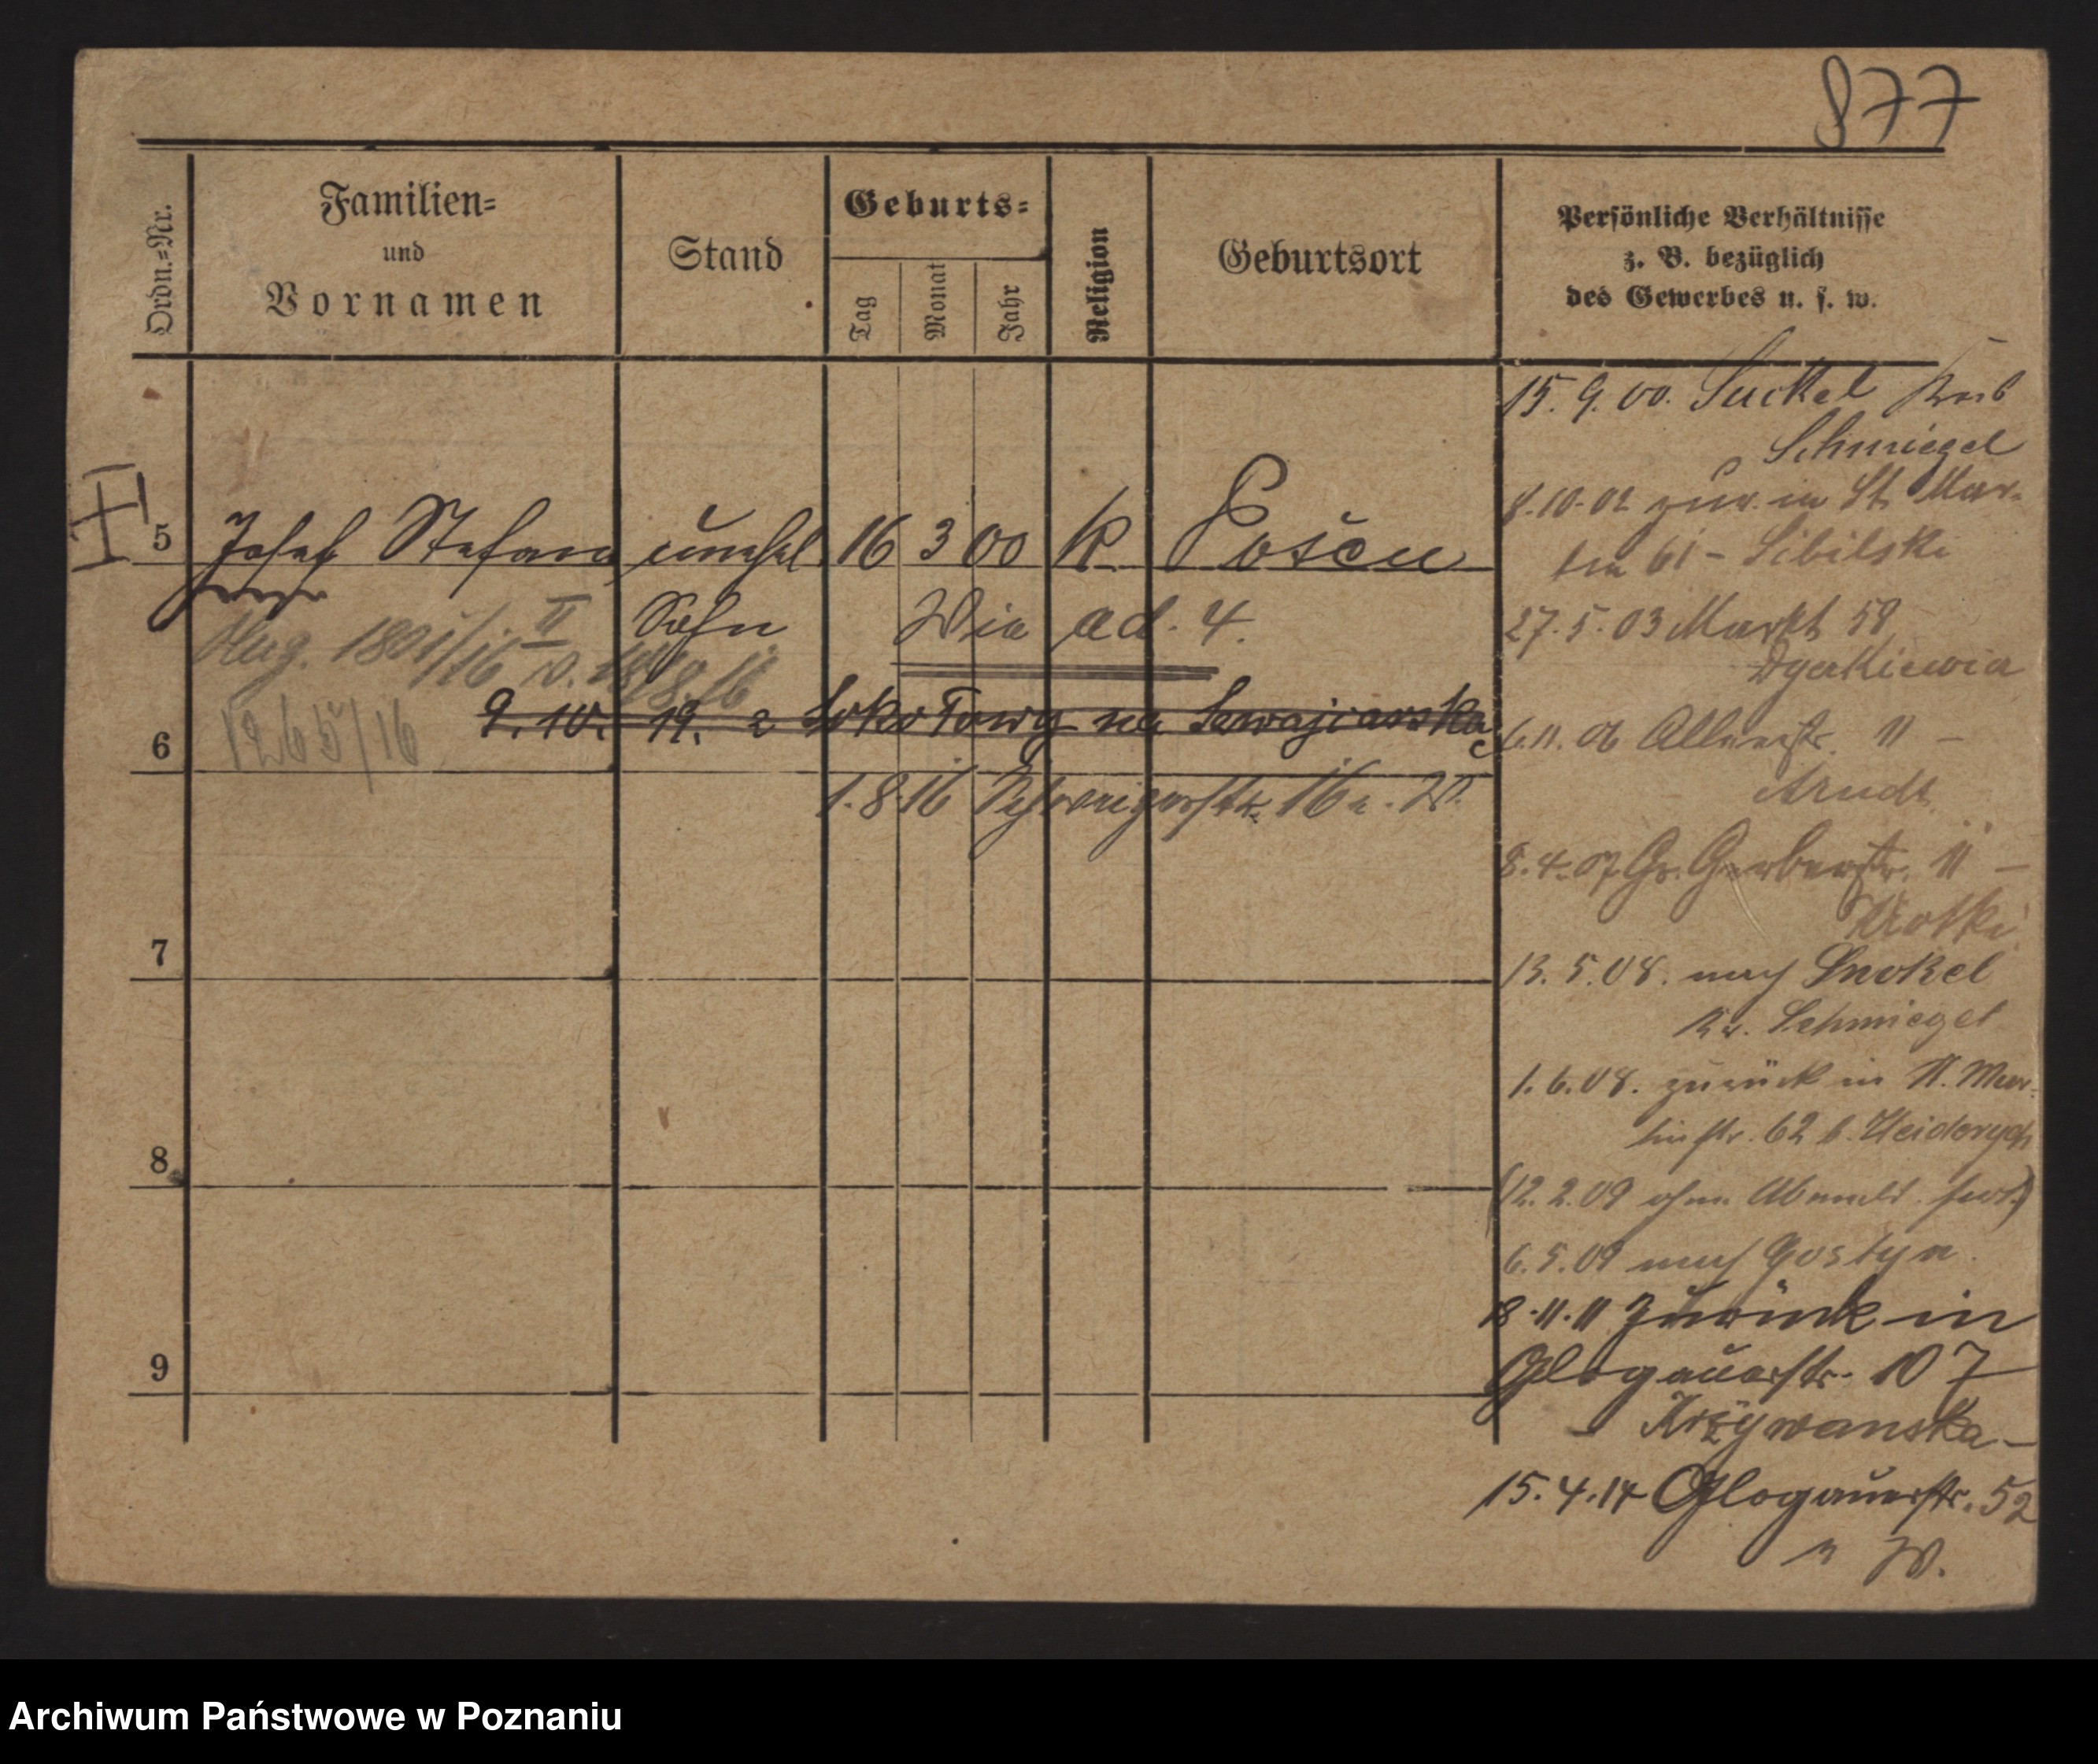 877
Ordn.=Nr.
Familien=
und
Vornamen
Stand
Geburts=
Tag
Monat
Jahr
Religion
Geburtsort
Persönliche Verhältnisse
z. B. bezüglich
des Gewerbes u. s. w.
5
Josef Stefan
unehel.
16 3 00
K.
Posen
Sohn
Wie ad. 4.
Aug. 1891/16 II
1265/16
9. 10. 19. z Sokołowy na
1.8.16 16 a. W.
6
7
8
9
15. 9. 00. Suckel
Schmiegel
8.10.02 zur. in St. Mar-
tin 61 - Sibilski
27.5.03 Markt 58
6.11.06 Allerstr. 11 -
Arndt
8.4.07 Gr. Gerberstr. 11 -
13.5.08. nach Snokel
Kr. Schmiegel
1.6.08. zurück in St. Mar-
tinstr. 62 b.
(12.2.09 ohne Abmeld. fort)
6.5.09 nach Gostyn.
18.11.11 Zurück in
Glogauerstr. 107
- Krzywanska -
15.4.14 Glogauerstr. 52
W.
Archiwum Państwowe w Poznaniu